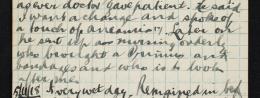 as ever doctor gave patient. He said
I want a change and spoke of
a touch of anaemia. Later on
he sent up a nursing orderly
who brought a Primus and
bandages and who is to look
after me.
5/11/18 A very wet day. Remained in bed